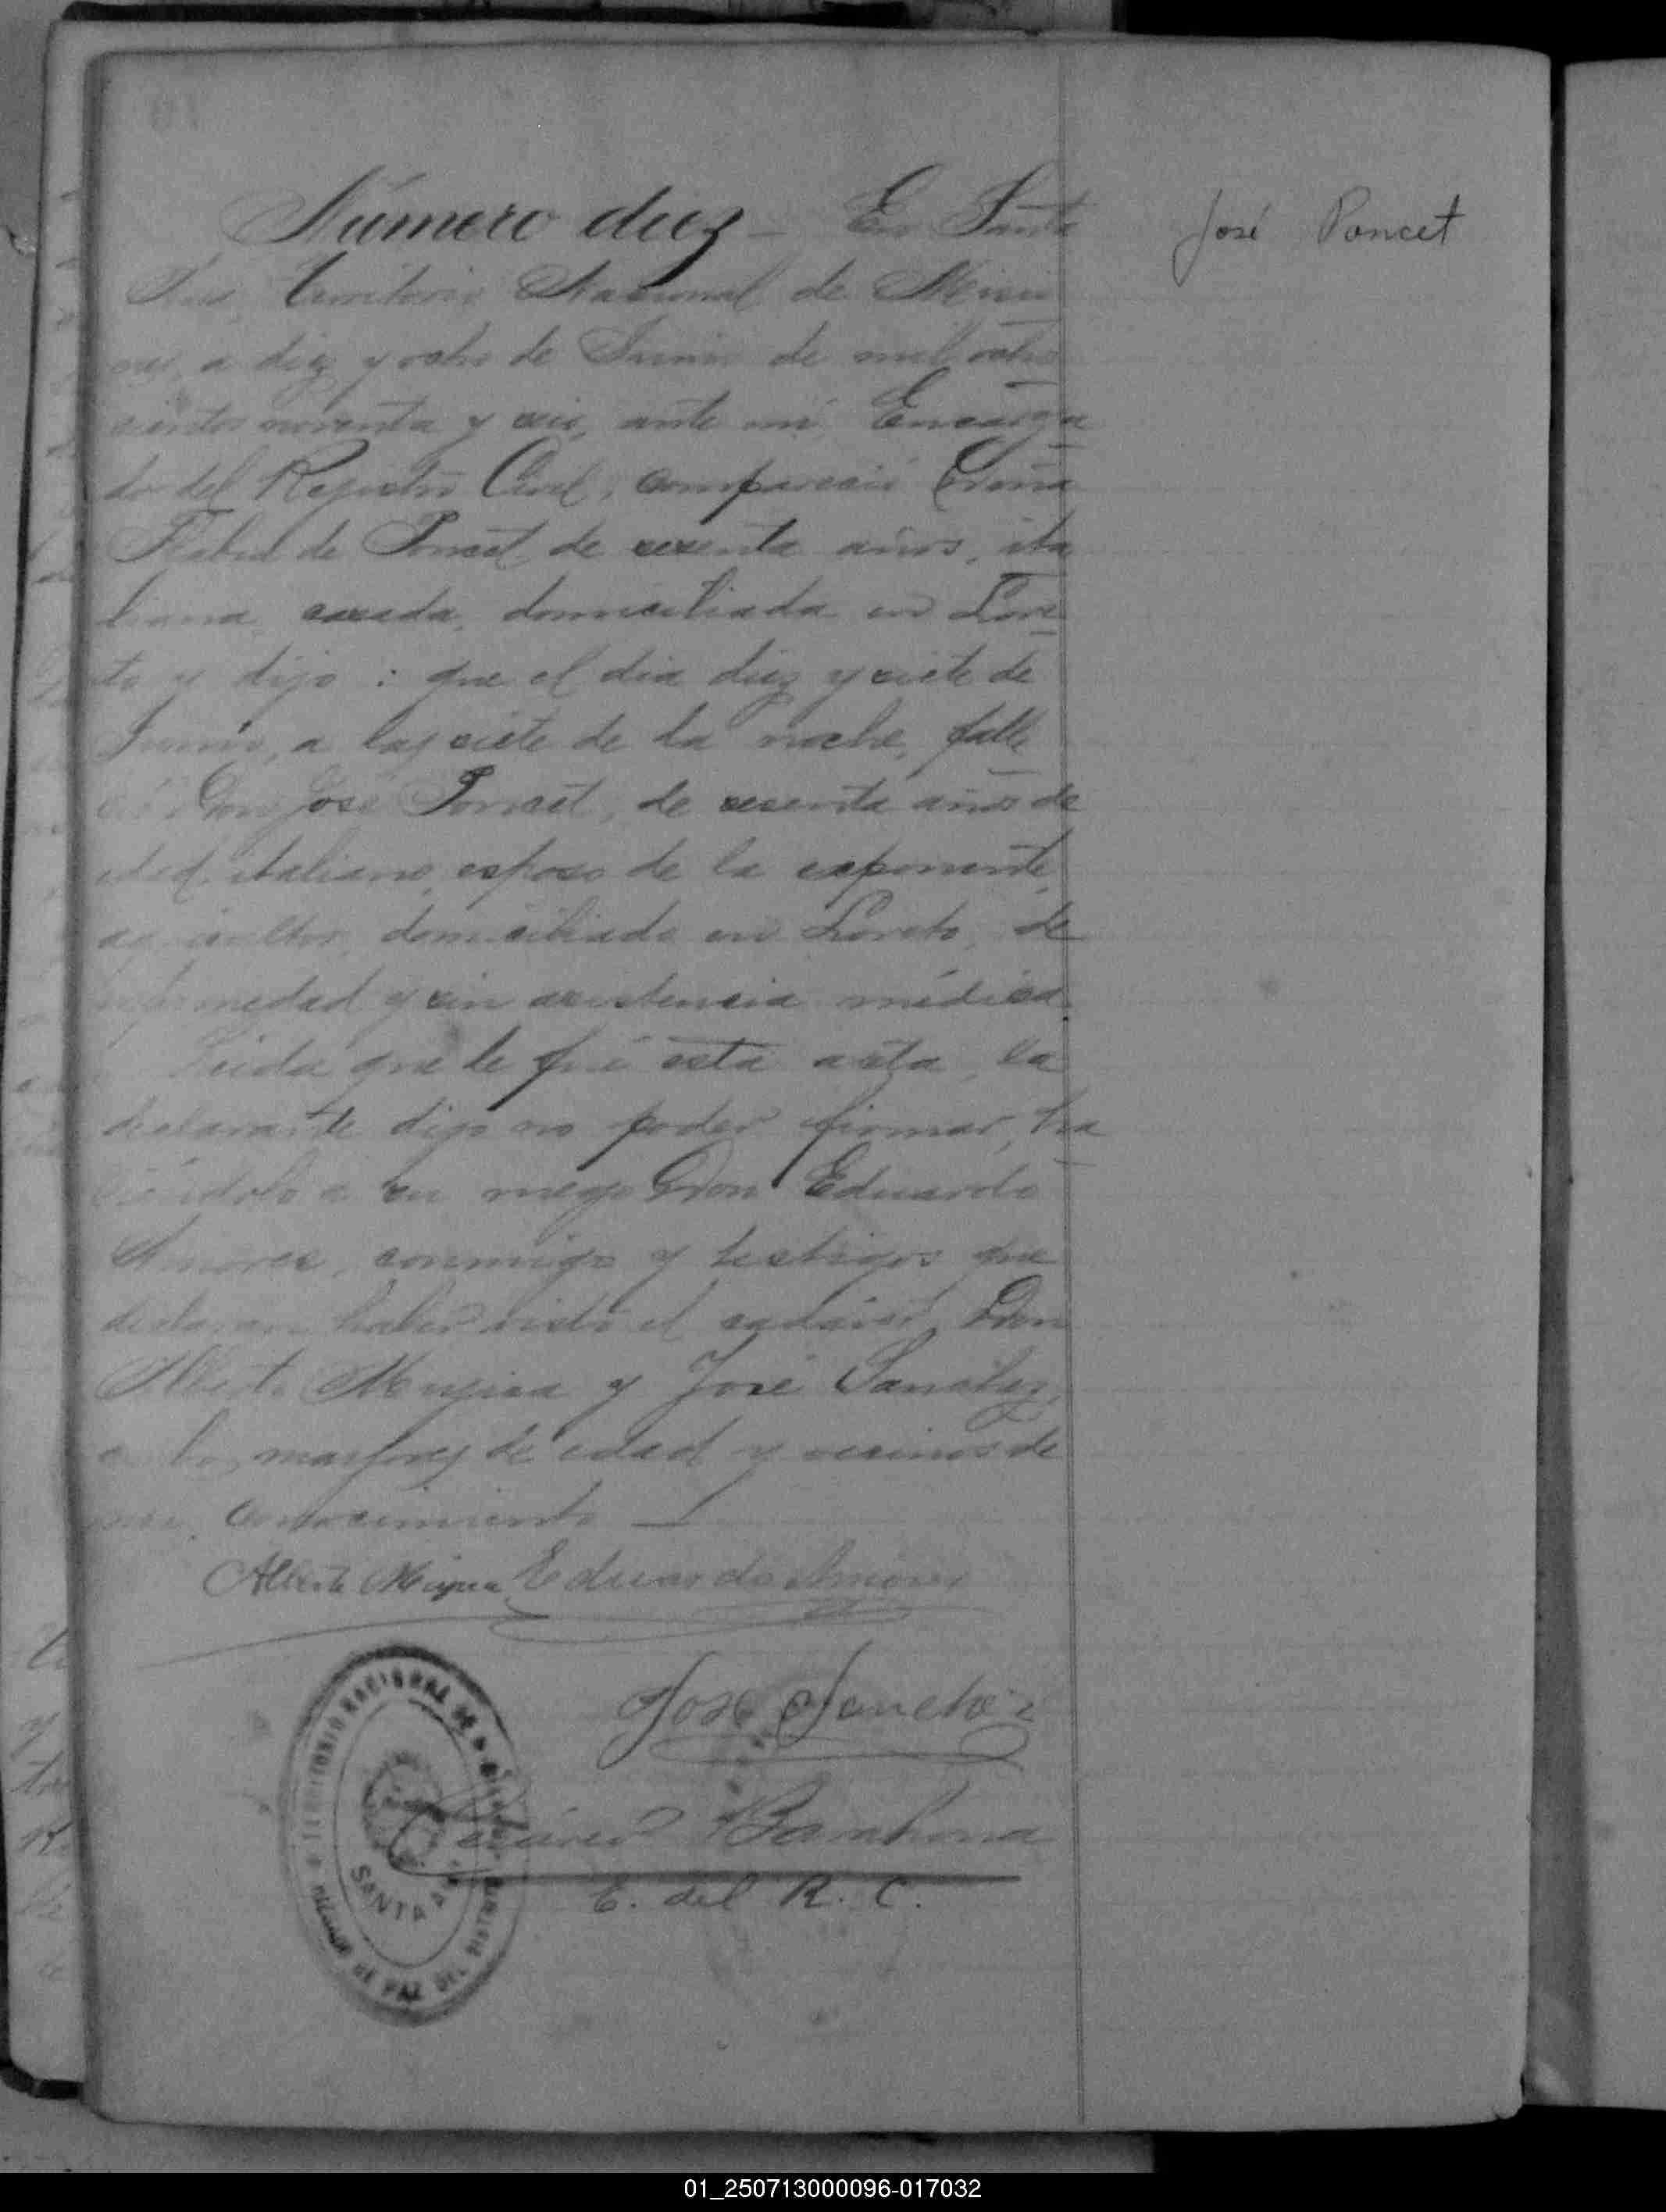 Número diez - En Santa
José Poncet
Ana, Territorio Nacional de Misio
nes, a diez y ocho de Junio de mil ocho
cientos noventa y seis, ante mí Encarga
do del Registro Civil, compareció Doña
de Poncet de sesenta años, ita
liana, casada, domiciliada en Lore
to y dijo : que el dia diez y siete de
Junio, a las siete de la noche, falle
ció Don José Poncet, de sesenta años de
edad, italiano, esposo de la esponente,
agricultor, domiciliado en Loreto, de
enfermedad y sin asistencia médica.
Leida que le fué esta acta, la
declarante dijo no poder firmar, ha
ciéndolo a su ruego Don Eduardo
Amores, conmigo y testigos que
declaran haber visto el cadáver, Don
Alberto Mugica y José Sanchez,
ambos mayores de edad y vecinos de
mi conocimiento
Alberto Mugica Eduardo Amores
José Sanchez
Barahona
E. del R. C.
TERRITORIO NACIONAL DE MISIONES
SANTA ANA
JUZGADO DE PAZ DEL DISTRITO
01_250713000096-017032